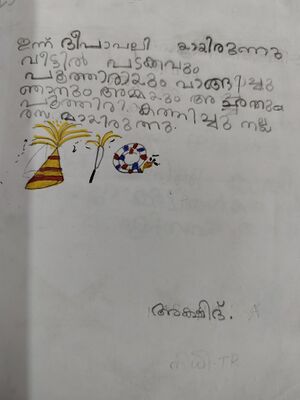 ഇന്ന് ദീപാപലി മായിരുന്നു
വീട്ടിൽ പടക്കവും
പൂത്താരായും വാങ്ങിച്ചു
ഞാനും അമ്മയും അ
പൂത്തിരി കത്തിച്ചു നല്ല
രസ മായിരുന്നു.
അക്ഷിദ്. A